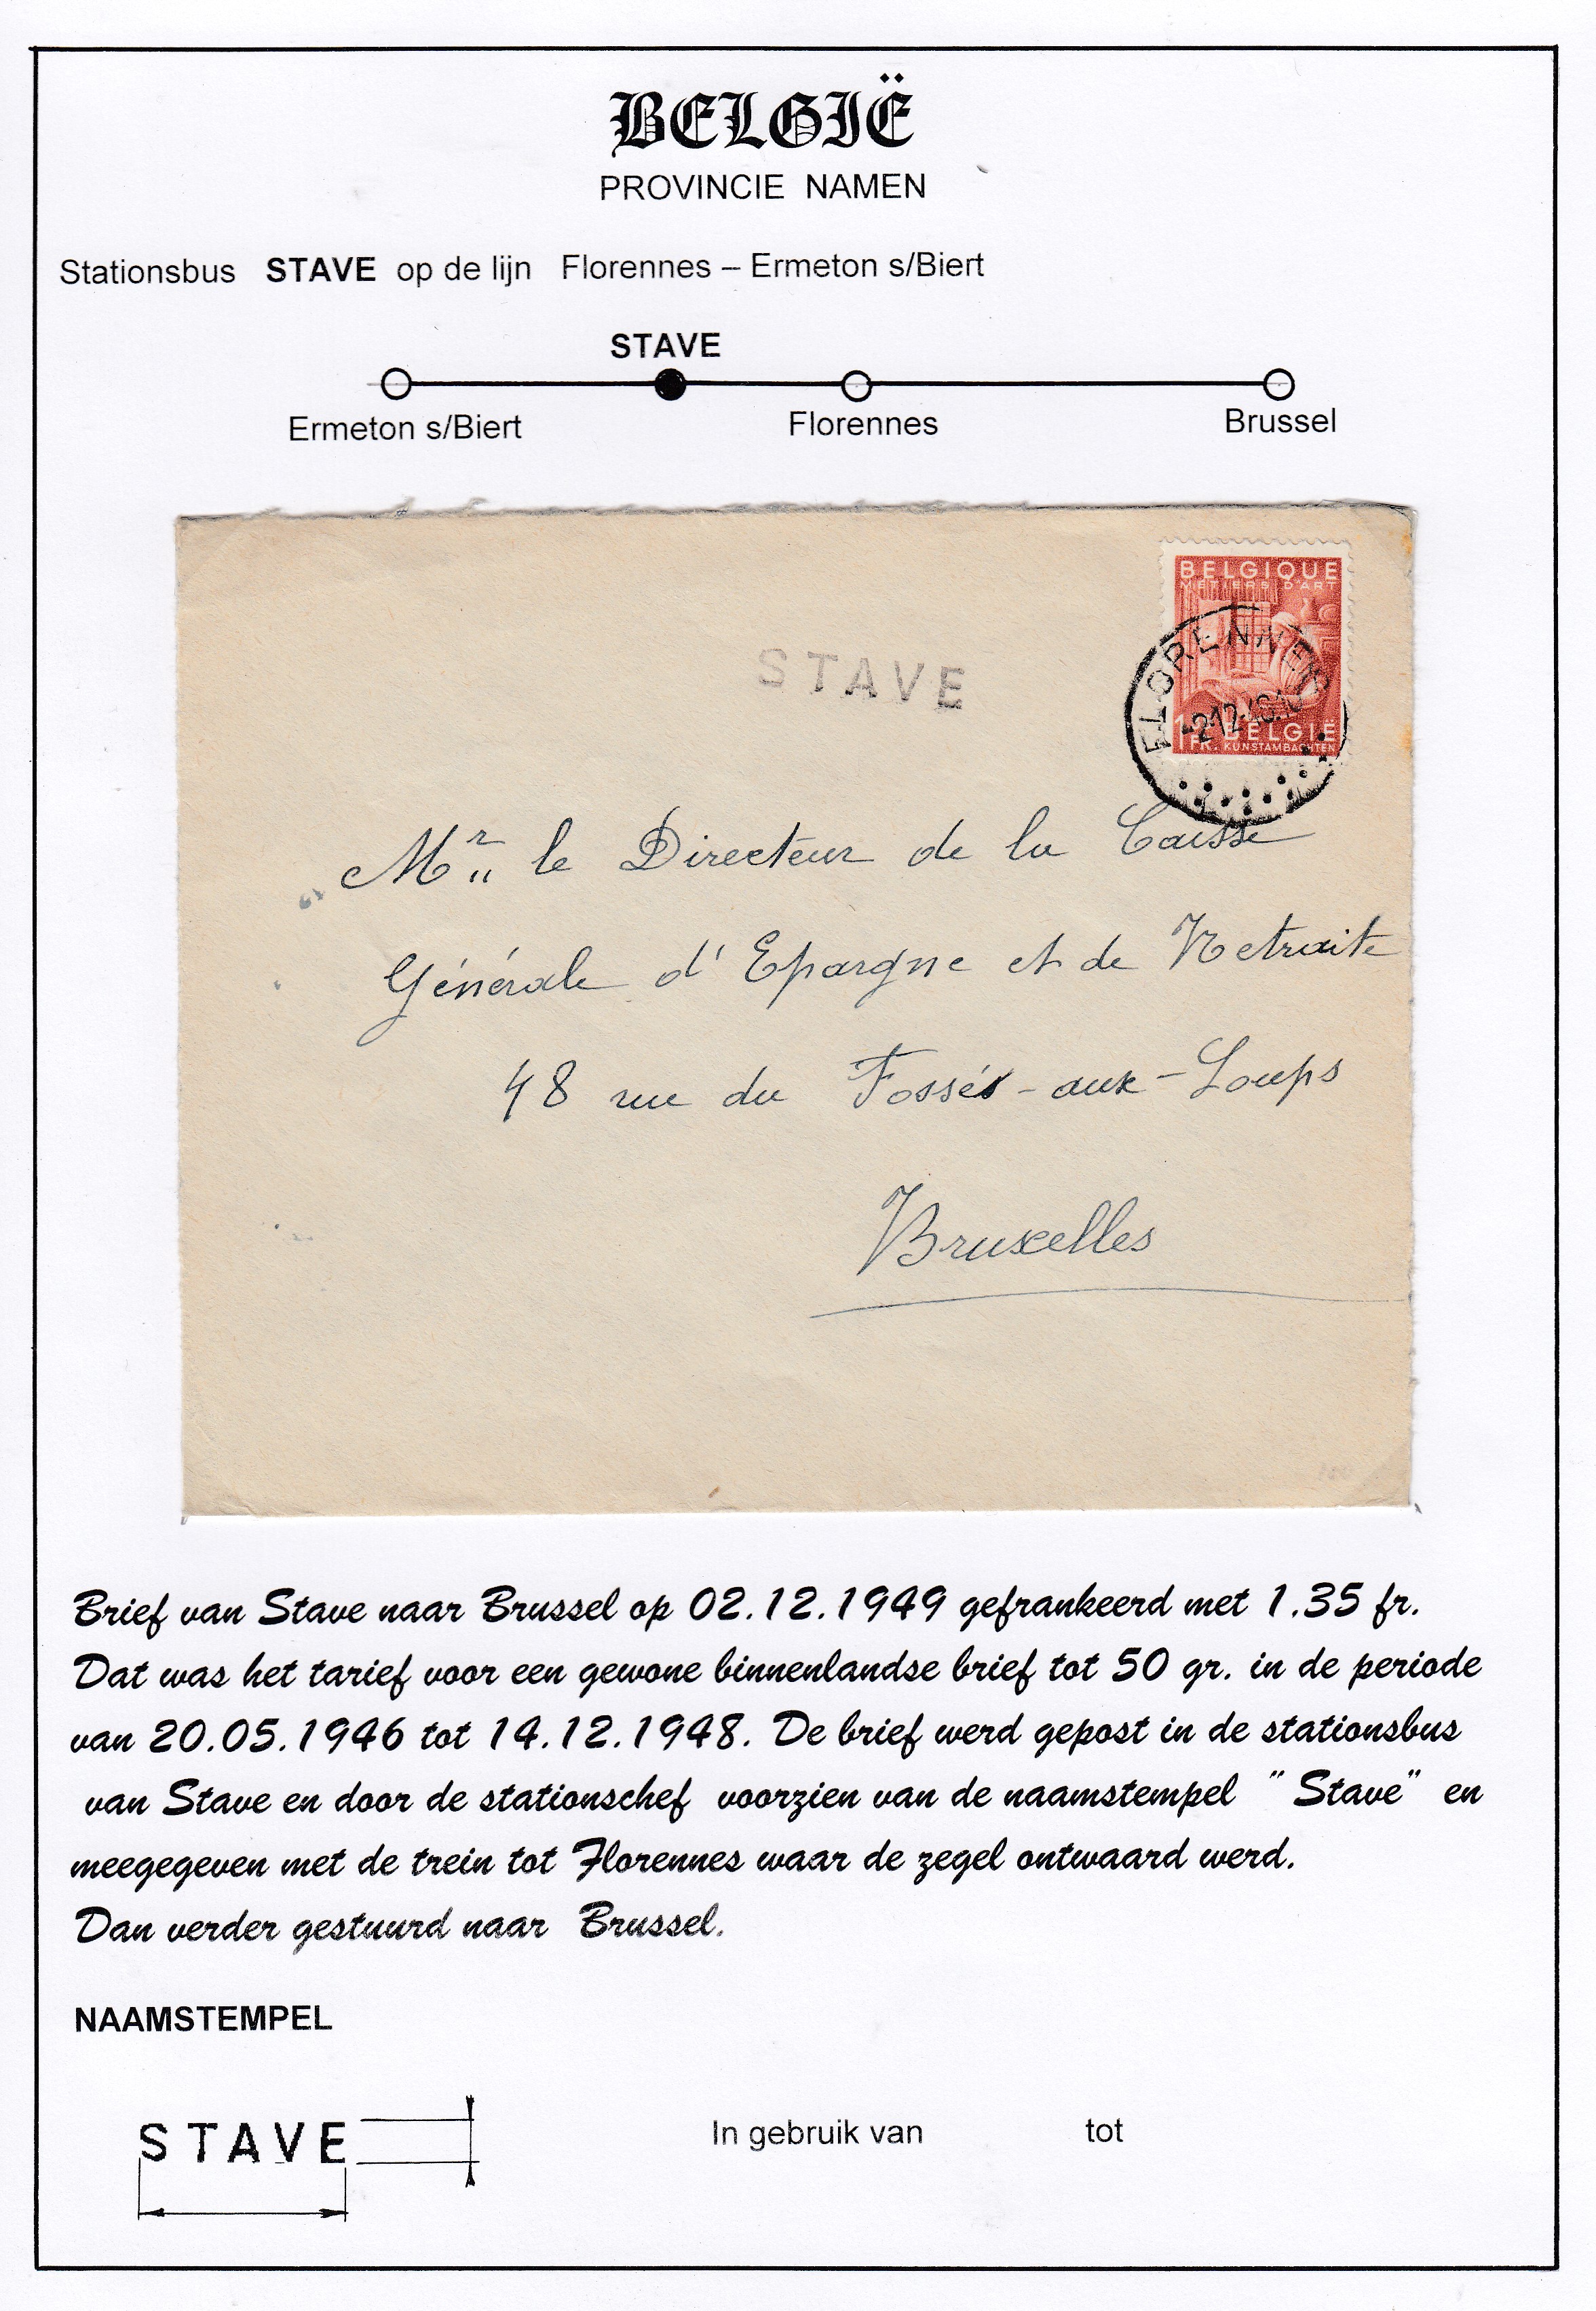 BELGIË
PROVINCIE NAMEN
Stationsbus STAVE op de lijn Florennes – Ermeton s/Biert
STAVE
Ermeton s/Biert Florennes Brussel
BELGIQUE
METIERS D'ART
STAVE
FLORENNES
-2.12.48.
1 FR. BELGIË
KUNSTAMBACHTEN
Mr le Directeur de la Caisse
Générale d'Epargne et de Retraite
48 rue du Fossés-aux-Loups
Bruxelles
Brief van Stave naar Brussel op 02.12.1949 gefrankeerd met 1.35 fr.
Dat was het tarief voor een gewone binnenlandse brief tot 50 gr. in de periode
van 20.05.1946 tot 14.12.1948. De brief werd gepost in de stationsbus
van Stave en door de stationschef voorzien van de naamstempel "Stave" en
meegegeven met de trein tot Florennes waar de zegel ontwaard werd.
Dan verder gestuurd naar Brussel.
NAAMSTEMPEL
STAVE
In gebruik van tot